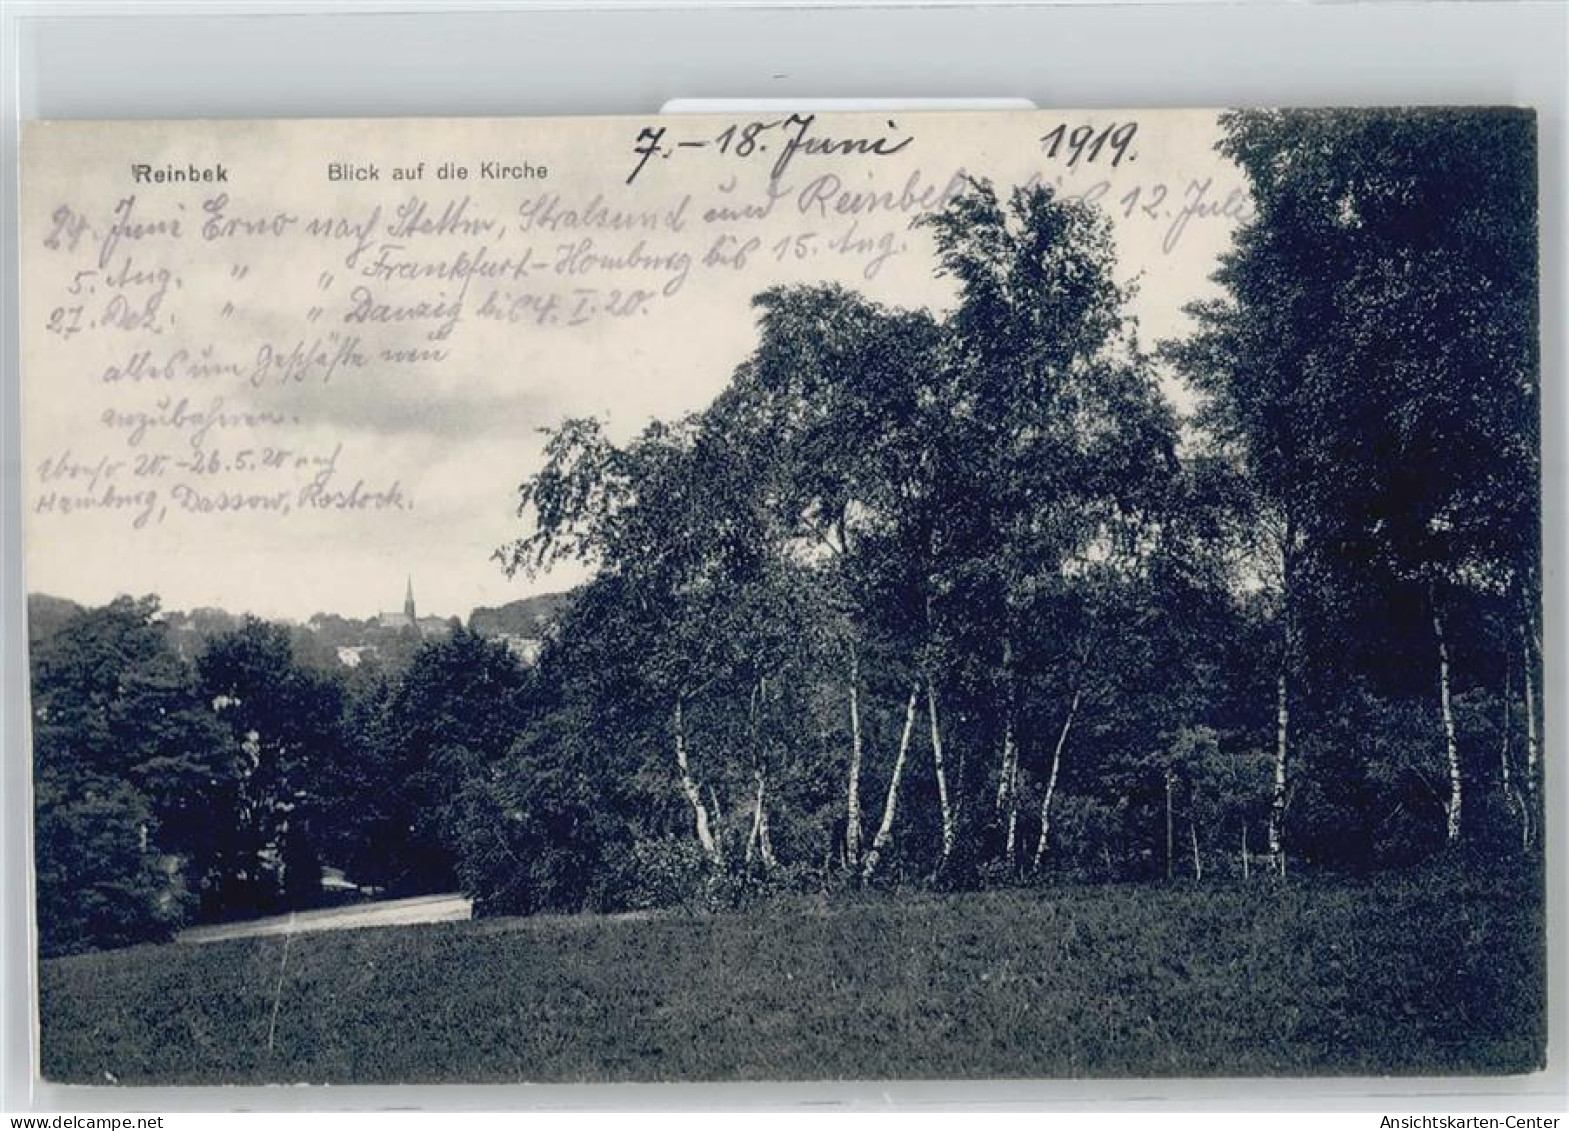 7.–18. Juni 1919.
Reinbek Blick auf die Kirche
24. Juni Erno nach Stettin, Stralsund und Reinbek bis 12. Juli
5. Aug. " " Frankfurt-Homburg bis 15. Aug.
27. Dez. " " Danzig bis 4. I. 20.
alles um Geschäfte neu
anzubahnen.
Ebenso 20.–26.5.20 nach
Hamburg, Dassow, Rostock.
Ansichtskarten-Center